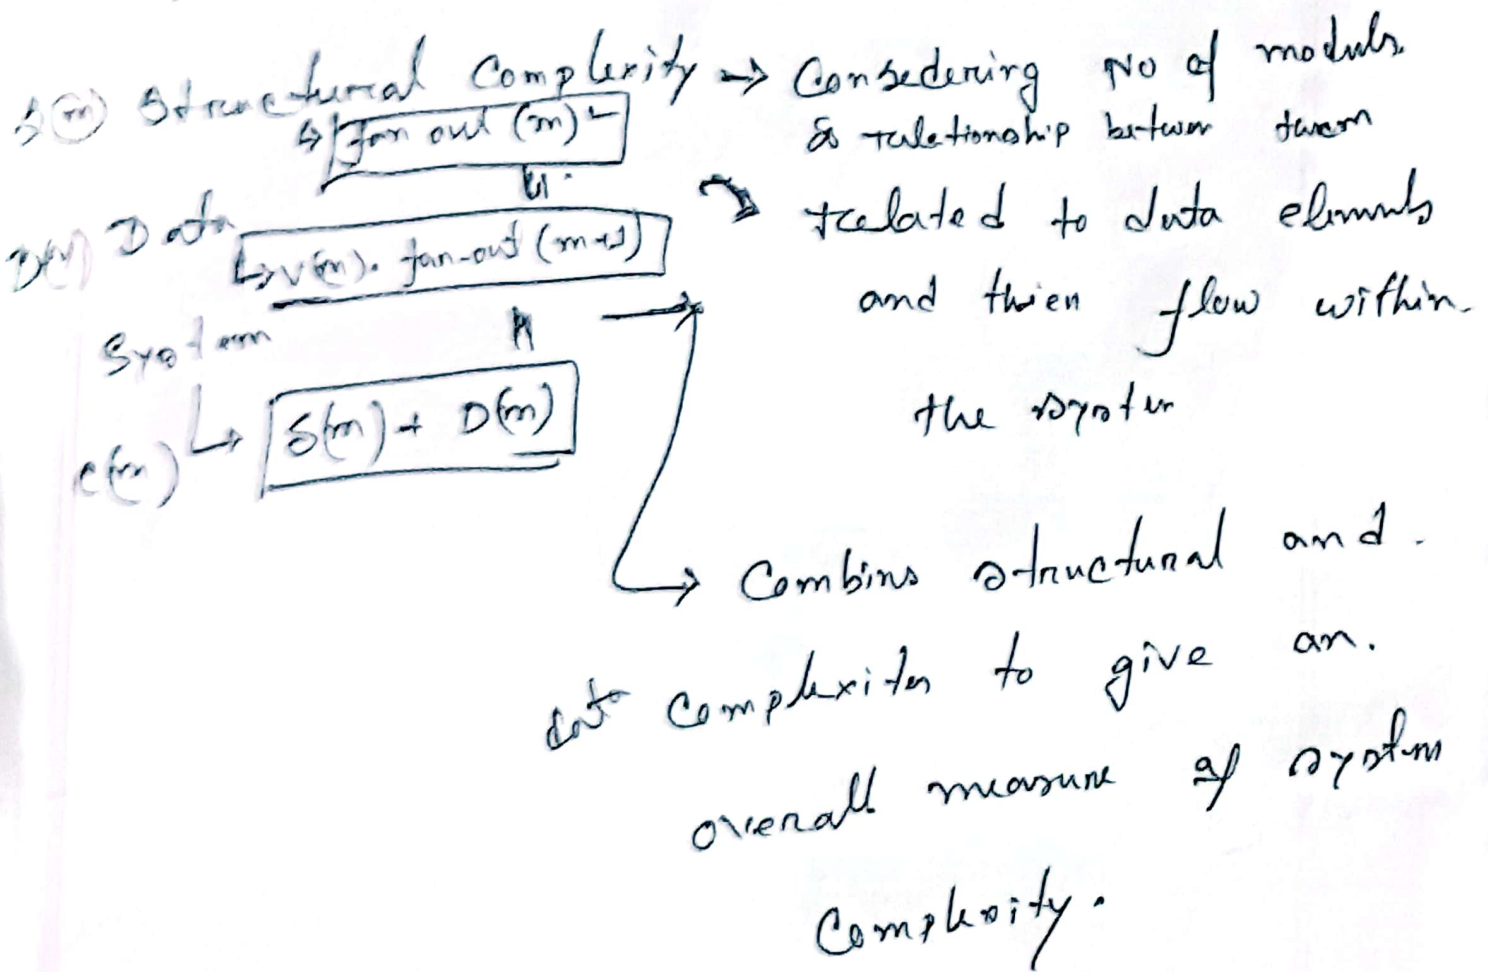 S(m) Structural Complexity → Consedering No of moduls
& relationship betwen tham
↳ fan out (m)²
D(m) Data → related to data elements
↳ v(m). fan-out (m+1)
and thien flow within
the system
System
c(m) ↳ S(m) + D(m)
→ Combins structural and
data complexites to give an
overall measure of system
Complexity.